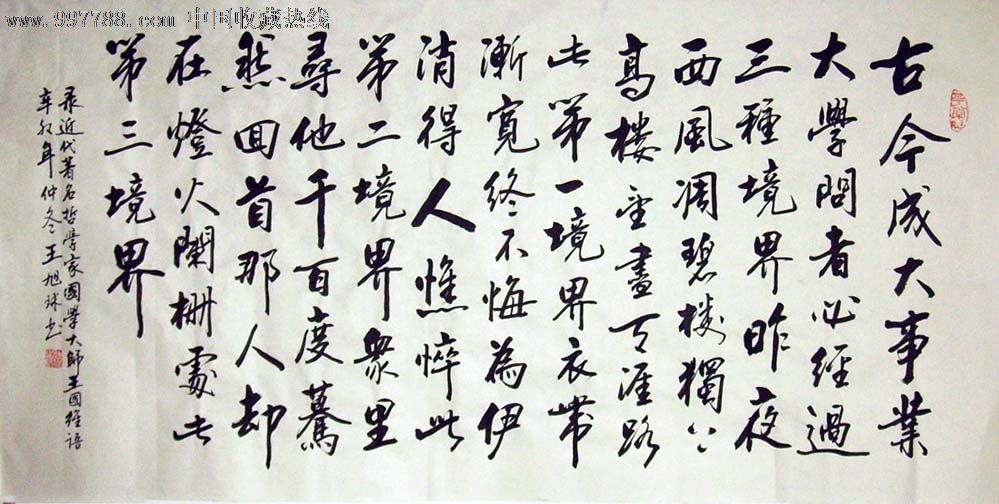 www.997788.com 中国收藏热线
古今成大事業
大學問者必經過
三種境界昨夜
西風凋碧樹獨上
高楼望盡天涯路
此第一境界衣帶
漸寬終不悔為伊
消得人憔悴此
第二境界衆里
尋他千百度驀
然回首那人却
在燈火闌栅處此
第三境界
录近代著名哲學家國學大師王國維語
辛卯年仲冬王旭球书